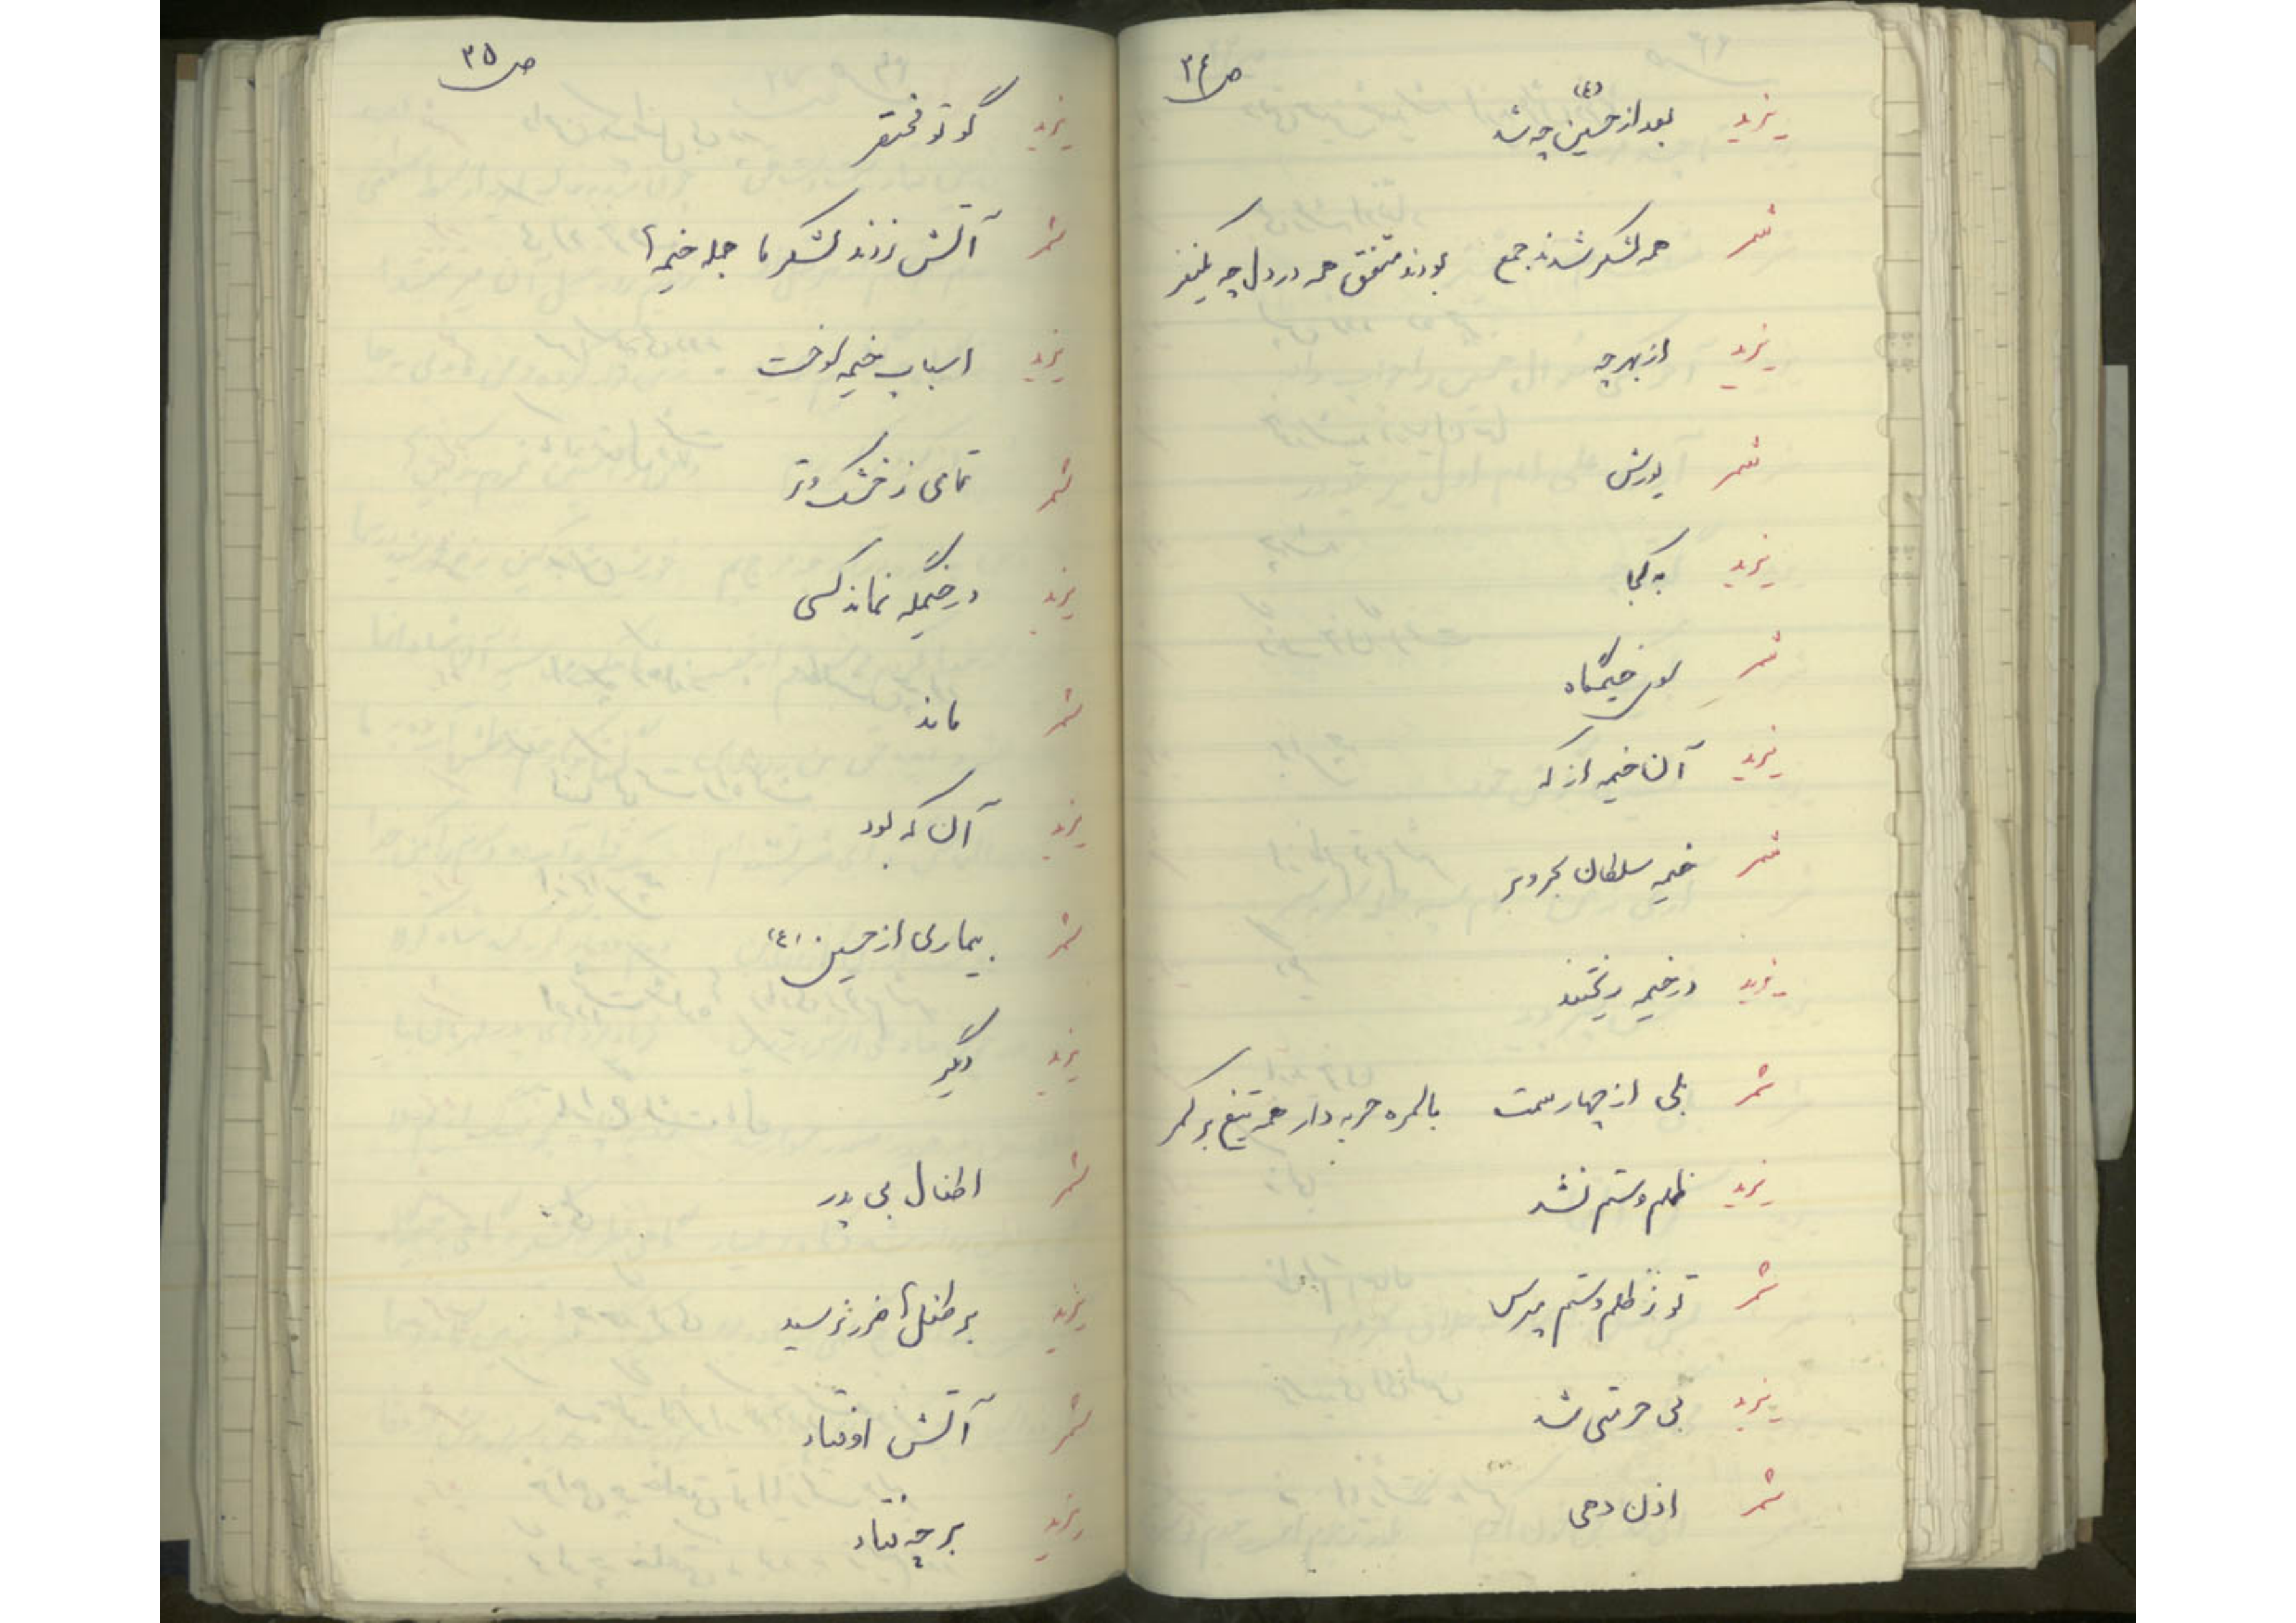 ص ۳۴
یزید بعد از حسین (ع) چه شد
شمر همه لشکر شدند جمع بودند متفق همه در دل چه یکنفر
یزید از بهر چه
شمر یورش
یزید به کجا
شمر سوی خیمگاه
یزید آن خیمه از که
شمر خیمه سلطان بحر و بر
یزید در خیمه ریختند
شمر بلی از چهار سمت بالمره حربه دار همه تیغ بر کمر
یزید ظلم و ستم نشد
شمر تو ز ظلم و ستم مپرس
یزید بی حرمتی شد
شمر اذن دهی
ص ۳۵
یزید گو تو مختصر
شمر آتش زدند لشکر ما جمله خیمه ها
یزید اسباب خیمه سوخت
شمر تمامی ز خشک و تر
یزید در خیمگه نماند کسی
شمر ماند
یزید آن که بود
شمر بیماری از حسین (ع)
یزید دیگر
شمر اطفال بی پدر
یزید بر طفل ها ضرر نرسید
شمر آتش اوفتاد
یزید بر چه فتاد